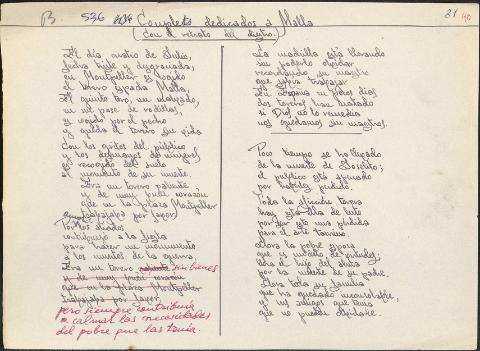 B 536 Couplets dedicados a Malla 31 40
(Con el retrato del diestro.)
El día cuatro de Julio,
fecha triste y desgraciada,
en Montpellier es cogido
el torero espada Malla,
El quinto toro, un
un de pase de rodillas,
es cogido por el pecho
y queda el torero sin vida
Con los gritos del público
y los desmayos de
es recogido del suelo
el de su muerte.
Era un torero valiente
y de muy buen corazón
que en la plaza Montpellier
trabajaba por favor
Por los aliados
contribuyó a la fiesta
para hacer un monumento
a los muertos de la guerra.
Era un torero sin bienes
y de muy buen corazón
que en la plaza Montpellier
trabajaba por favor
pero siempre contribuía
a calmar las necesidades
del pobre que las tenía.
La madrilla está llorando
sin poderlo olvidar
recordando su maestro
que iba a trabajar
En España en pocos días
dos toreros han matado
si Dios no lo remedia
nos quedamos sin maestros.
Poco tiempo se ha llevado
de la muerte de Joselito;
el público está apenado
por haberlo perdido.
Toda la afición torera
hoy está llena de luto
por ser una pérdida
para el arte taurino
Llora la pobre esposa
que es de virtudes;
llora el hijo del diestro
por la muerte de su padre.
Llora toda su familia
que ha quedado inconsolable,
y sus amigos que tenía
que no pueden olvidarle.